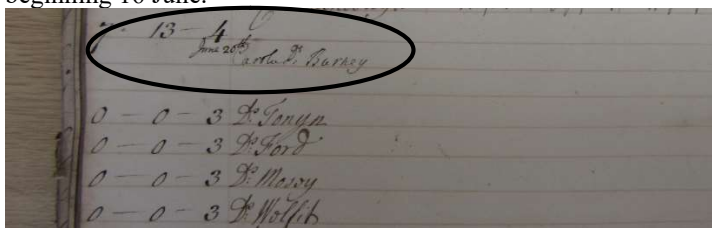 beginning 16 June.
7 - 13 - 4
June 20th
Dr. Burney
0 - 0 - 3 Do. Tonyn
0 - 0 - 3 Do. Ford
0 - 0 - 3 Do. Mossy
0 - 0 - 3 Do. Wolfit